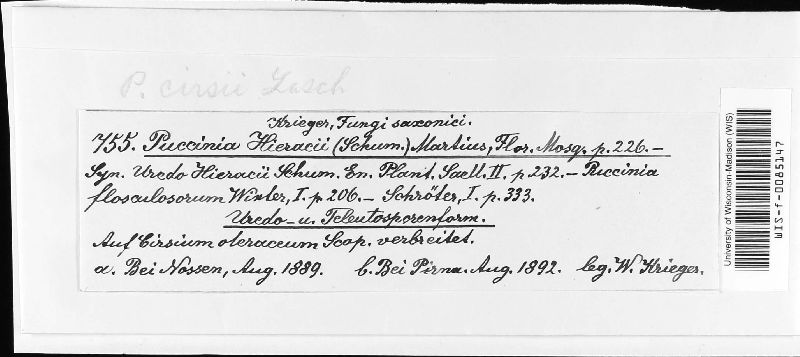 P. cirsii Lasch
Krieger, Fungi saxonici.
755. Puccinia Hieracii (Schum.) Martius, Flor. Mosq. p. 226. –
Syn. Uredo Hieracii Schum. En. Plant. Saell. II. p 232. – Puccinia
flosculosorum Winter, I. p. 206. – Schröter, I. p. 333.
Uredo- u. Teleutosporenform.
Auf Cirsium oleraceum Scop. verbreitet.
a. Bei Nossen, Aug. 1889. b. Bei Pirna. Aug. 1892. leg. W. Krieger.
University of Wisconsin-Madison (WIS)
WIS-f-0085147